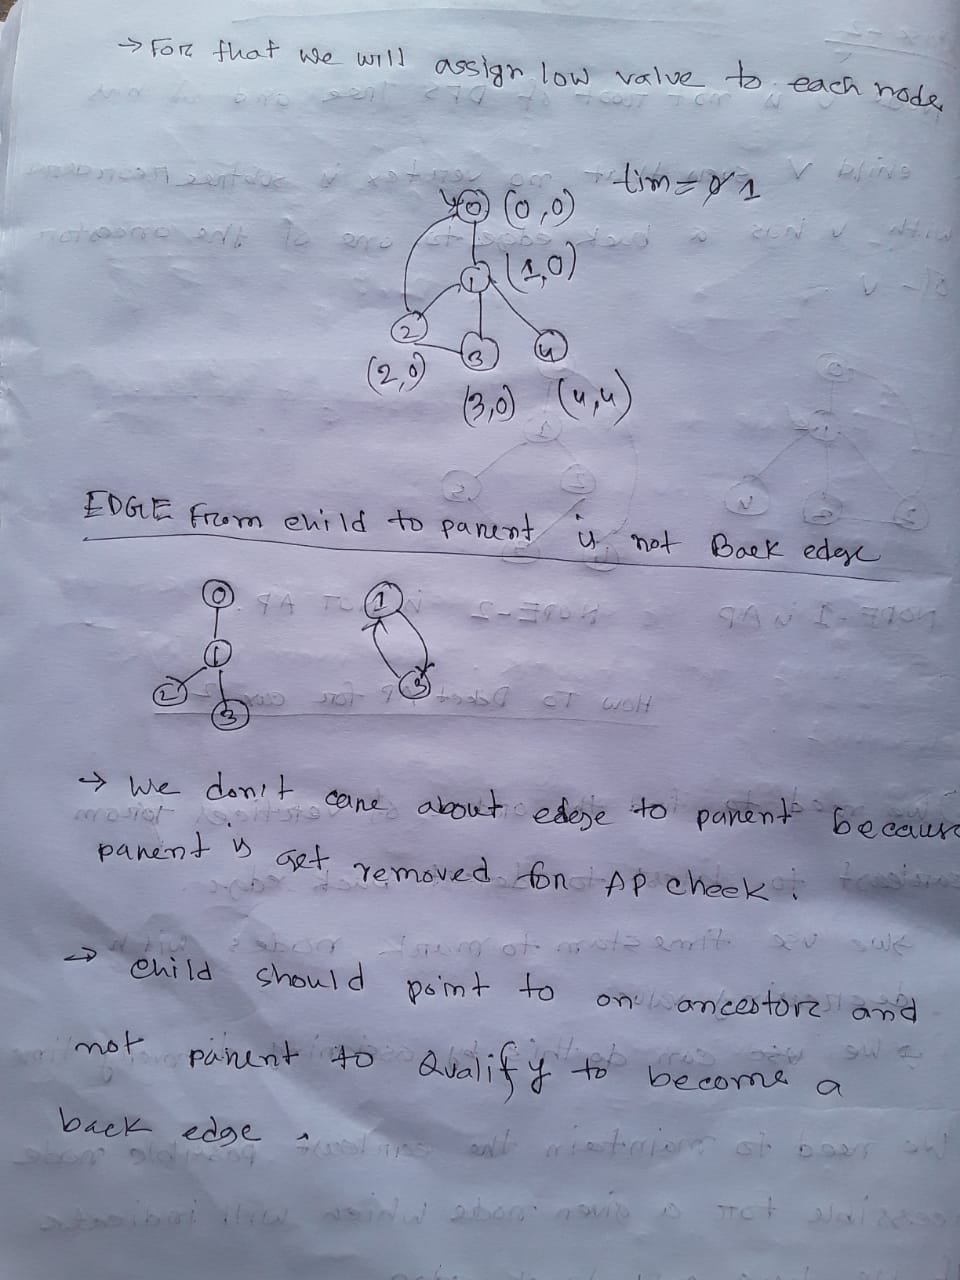 → For that we will assign low value to each node
tim = 0 1
0 (0,0)
1 (1,0)
2 3 4
(2,0) (3,0) (4,4)
EDGE From child to parent is not Back edge
0 1
1
2 3 3
→ We don't care about edge to parent because
parent is get removed for AP check.
→ child should point to an ancestor and
not parent to Qualify to become a
back edge.